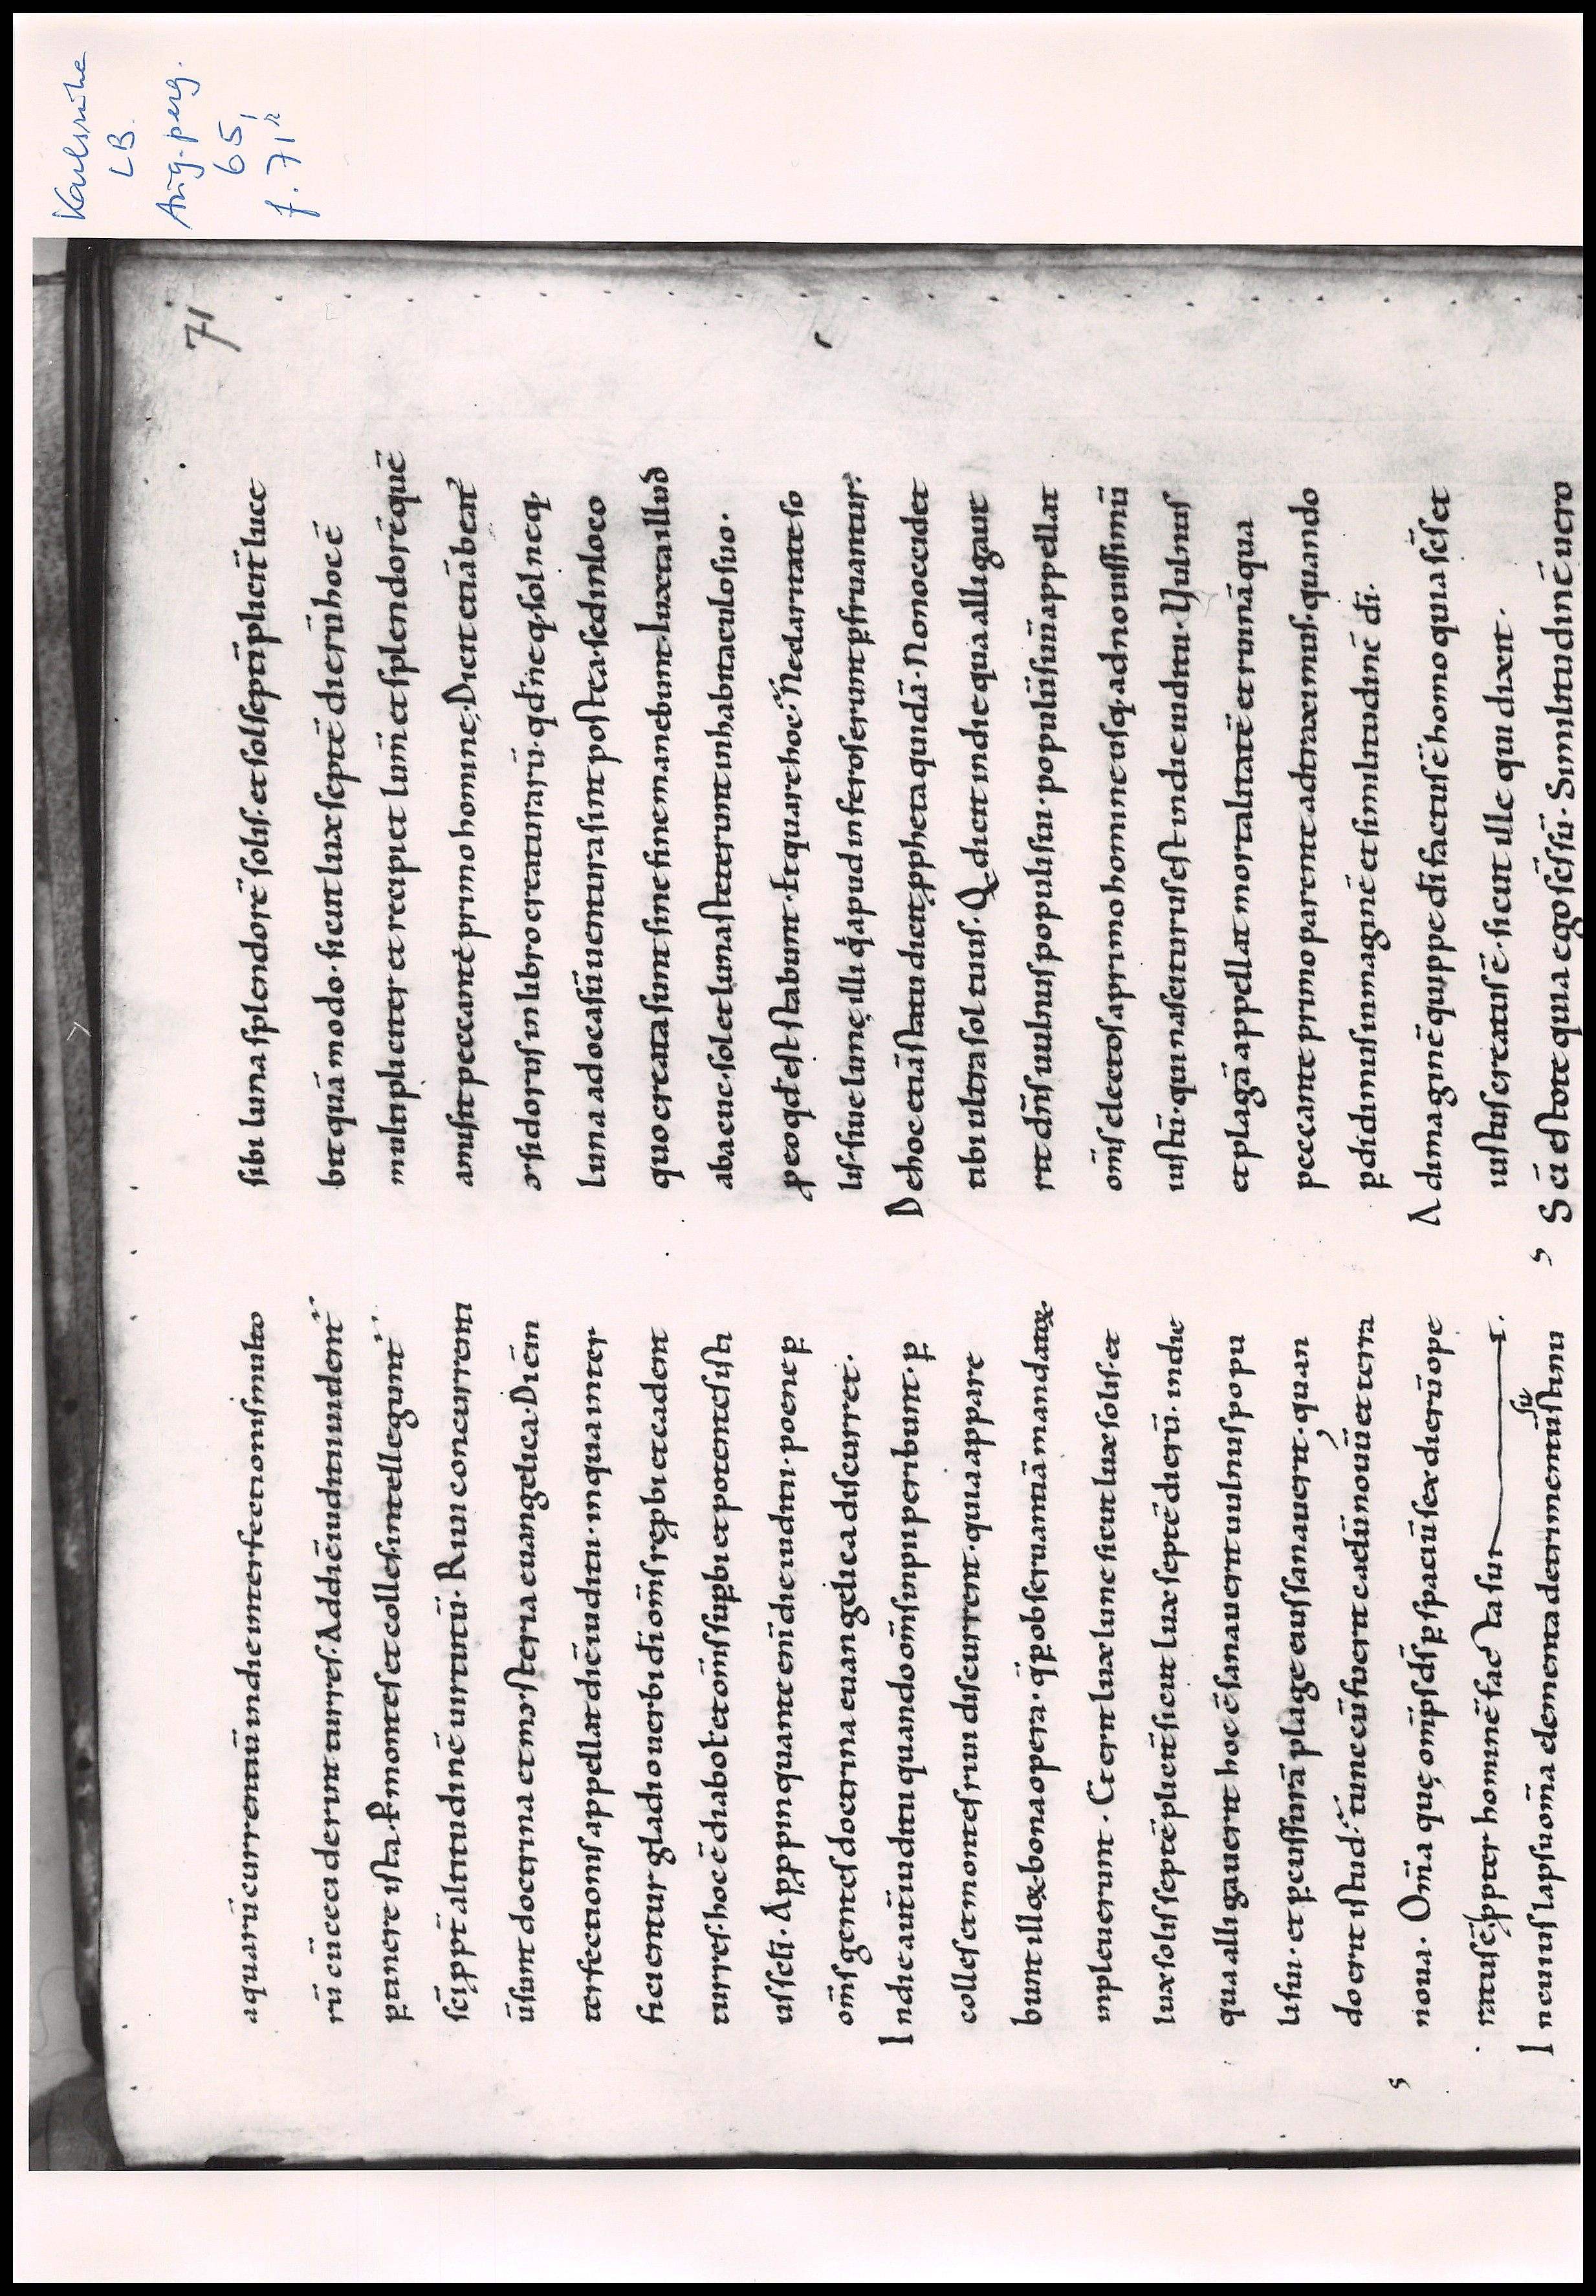 Karlsruhe
LB.
Aug. perg.
65,
f. 71r
71
aquarū currentiū in die interfectionis multo
rū cū ceciderunt turres. Ad diē iudicii uident̄
ꝑtinere ista. Ꝑ montes et colles intellegunt̄
sc̄i ꝓpt̄ altitudinē uirtutū. Riui concurrenti
ū sunt doctrina et mysteria euangelica. Diēm
terfectionis appellat diē iudicii. in qua inter
ficientur gladio uerbi dī om̄s reꝓbi et cadent
turres. hoc ē diabol' et om̄s suꝑbi et potentes isti
us sc̄li. Appropinquante enī die iudicii. poene ꝑ
om̄s gentes doctrina euangelica discurret.
In die autē iudicii quando om̄s inpii peribunt. ꝑ
colles et montes riui discurrent. quia appare
bunt illoꝝ bona opera. q̈ ꝑ obseruantiā mandatoꝝ
inpleuerunt. Et erit lux lune sicut lux solis. et
lux solis septēplicit̄ sicut lux septē dierū. in die
qua alligauerit hoc ē sanauerit uulnus popu
li sui. et ꝑcussurā plage eius sanauerit. quan
do erit istud. tunc cū fuerit caelū nouū et terra
noua. Om̄a quę om̄ps dī ꝑ spaciū sex dierū ope
ratus ē ꝓpter hominē fac ta sunt.
In cuius lapsu om̄a elementa detrimentū sustinu
sibi luna splendorē solis. et sol septīplicit̄ luce
bit quā modo. sicut lux septē dierū hoc ē
multiplicit̄er et recipiet lumē et splendorē quē
amisit peccante primo homine. Dicit etiā beat̄
ysidorus in libro creaturarū. qd̄ neq. sol neq.
luna ad ocasū uentura sint postea. sed in loco
quo creata sunt sine fine manebunt. Iuxta illud
abacuc. sol et luna steterunt in habitaculo suo.
ꝓ eo qd̄ est stabunt. Et quare hoc. Ne claritate so
lis. siue lunę, illi q̄ apud inferos erunt ꝑfruantur.
De hoc etiā statu dicit ꝓpheta quidā. Non occidet
tibi ultra sol tuus. Qd̄ dicit in die qua alligaue
rit dn̄s uulnus populi sui. populū suū appellat
om̄s electos a primo homine usq. ad nouissimū
iustū. qui nasciturus est in die iudicii. Vulnus
et plagā appellat mortalitatē et ruinā qua
peccante primo parente adtraximus. quando
ꝑdidimus immaginē et similitudinē dī.
Ad imaginē quippe dī factus ē homo quia sc̄s et
iustus creatus ē. sicut ille qui dixit.
Sc̄i estote quia ego sc̄s sū. Similitudinē uero